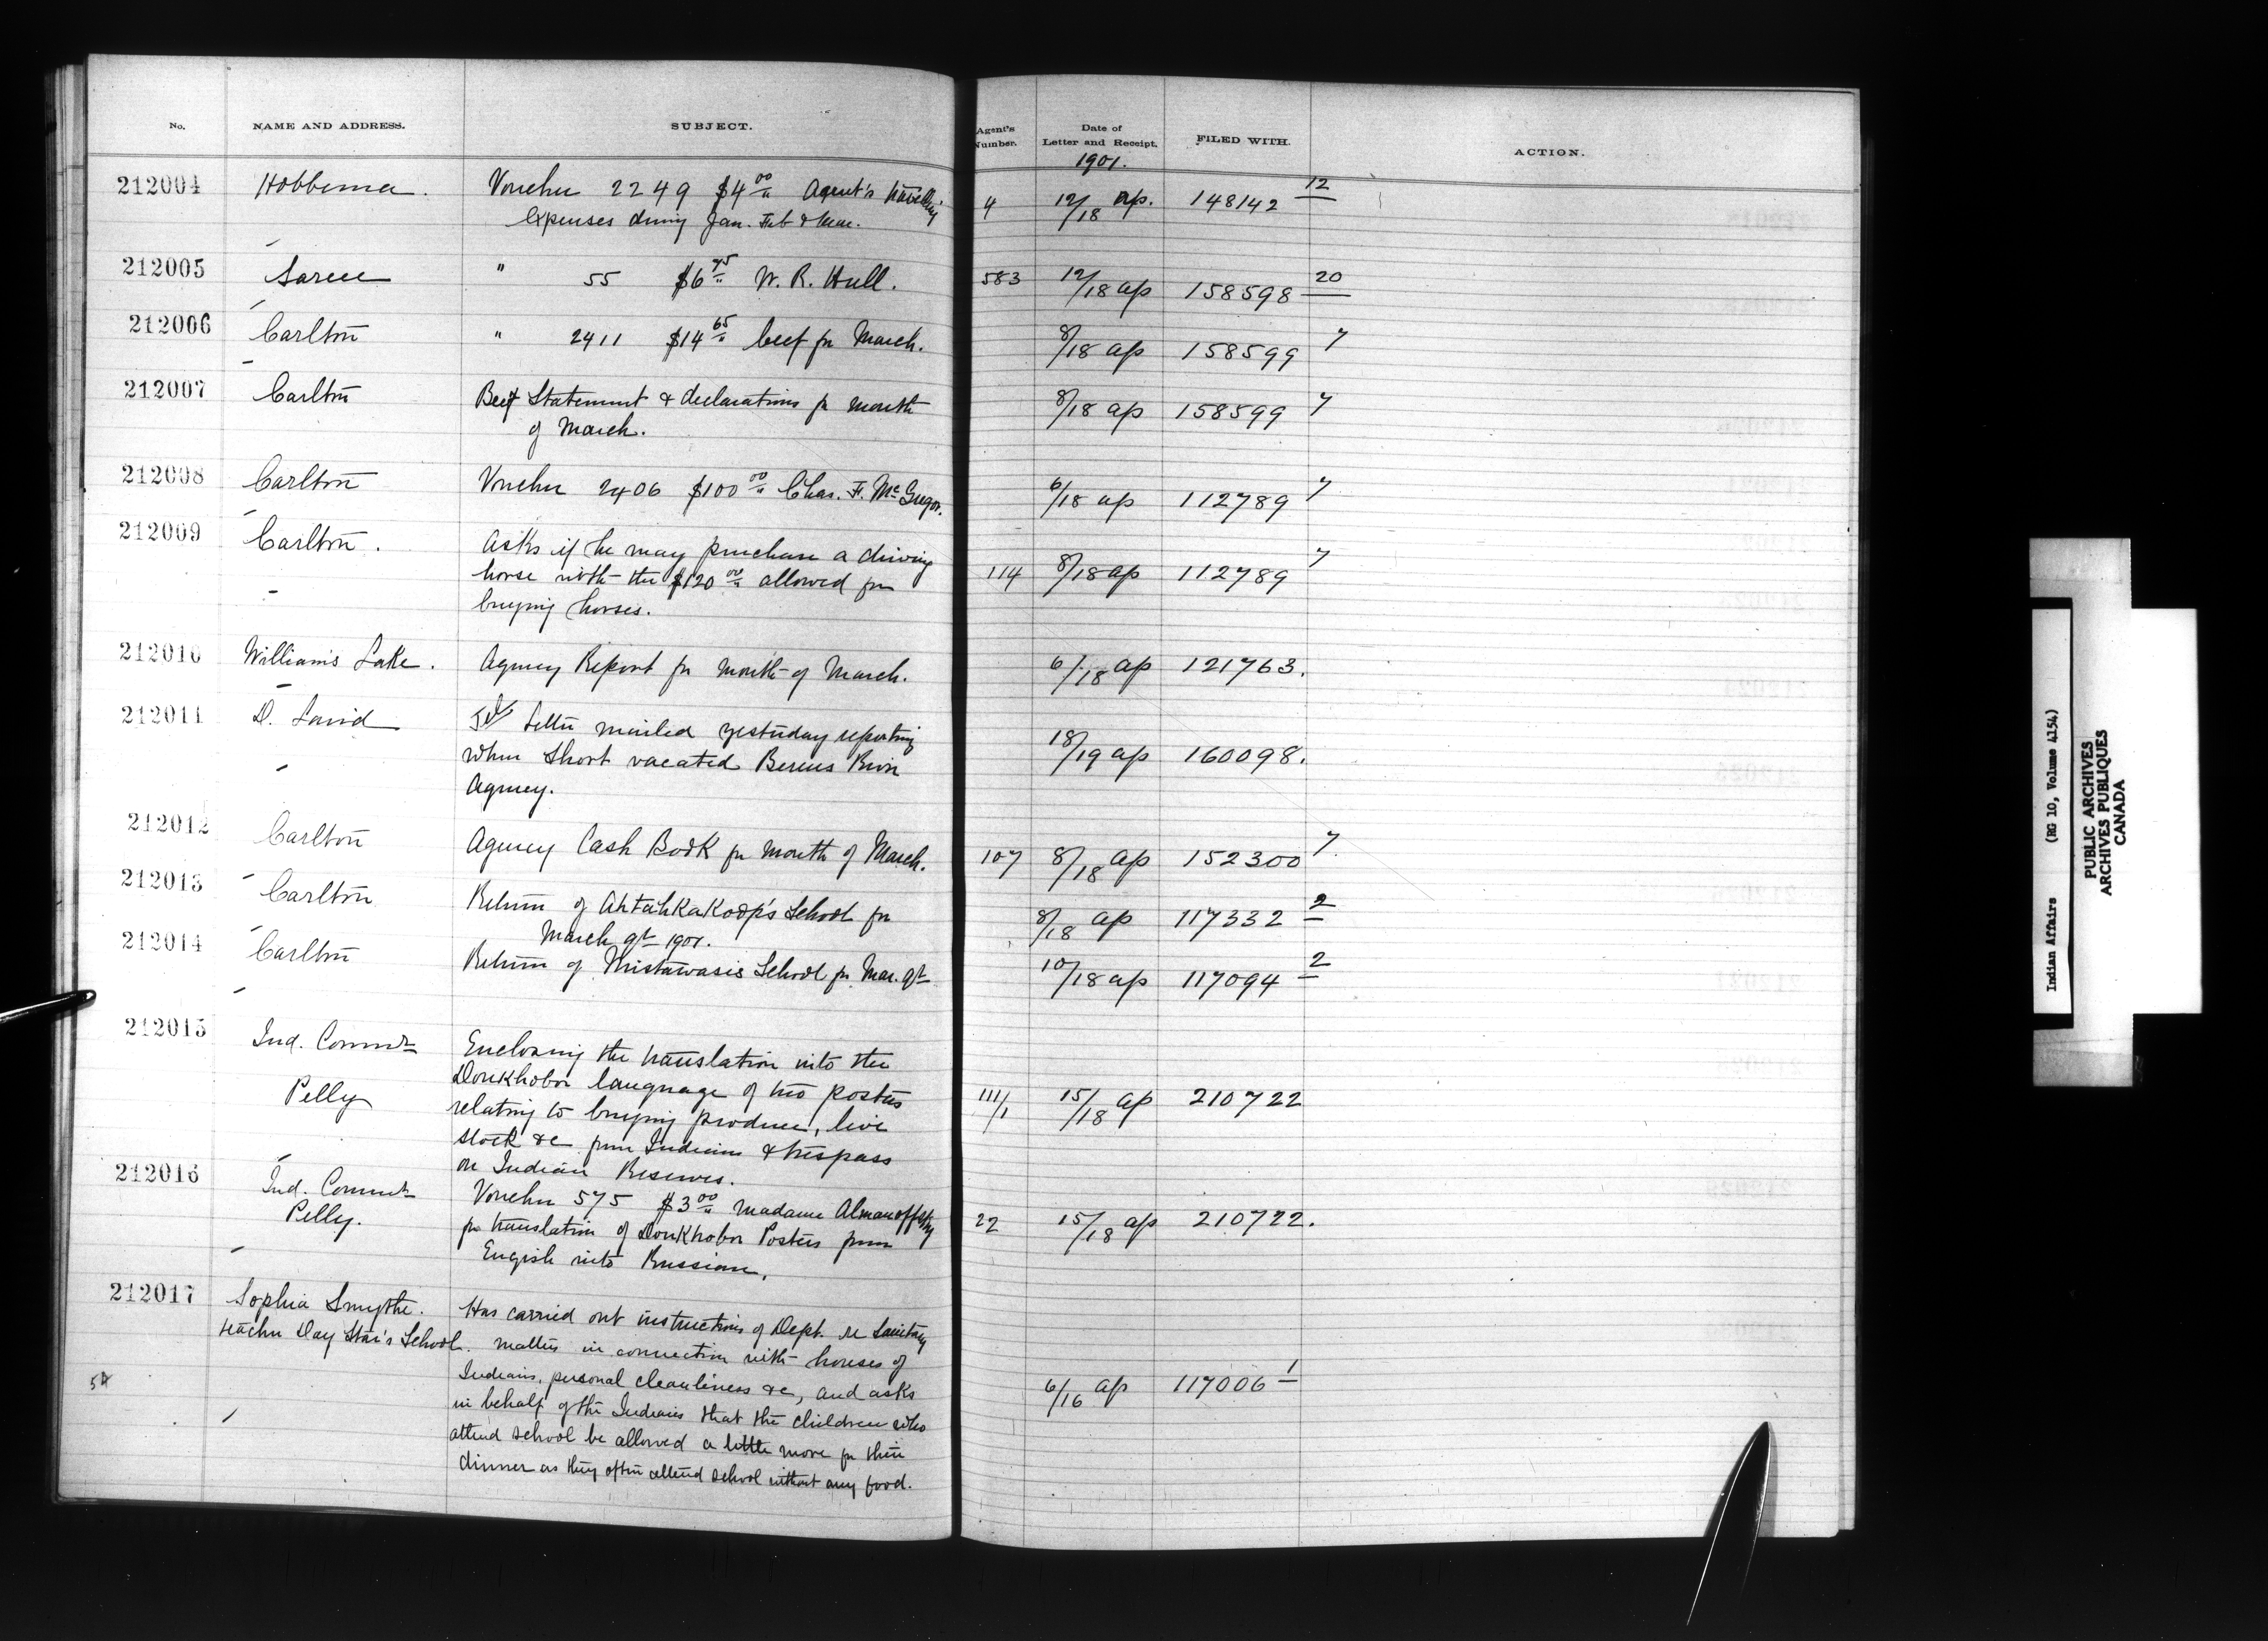 No. NAME AND ADDRESS. SUBJECT. Agent's Number. Date of Letter and Receipt. FILED WITH. ACTION.
1901.
212004 Hobbema. Voucher 2249 $4 00 Agent's travelling 4 12/18 ap. 148142 12
expenses during Jan. Feb & Mar.
212005 Sarcee " 55 $6 75 W. R. Hull. 583 12/18 ap 158598 20
212006 Carlton " 2411 $14 65 beef for March. 8/18 ap 158599 7
212007 Carlton Beef Statement & declarations for month 8/18 ap 158599 7
of March.
212008 Carlton Voucher 2406 $100 00 Chas. F. McGregor. 6/18 ap 112789 7
212009 Carlton. Asks if he may purchase a driving
horse with the $120 00 allowed for 114 8/18 ap 112789 7
buying horses.
212010 William's Lake. Agency Report for month of March. 6/18 ap 121763.
212011 D. Laird Tel Letter mailed yesterday reporting
when Short vacated Berens River 18/19 ap 160098.
Agency.
212012 Carlton Agency Cash Book for month of March. 107 8/18 ap 152300 7
212013 Carlton Return of Ahtahkakoop's School for 8/18 ap 117332 2
March qt 1901.
212014 Carlton Return of Mistawasis School for Mar. qt 10/18 ap 117094 2
212015 Ind. Commr Enclosing the translation into the
Pelly Doukhobor language of two posters 111/1 15/18 ap 210722
relating to buying produce, live
stock &c from Indians & trespass
on Indian Reserves.
212016 Ind. Commr Voucher 575 $3 00 Madame Almanoffsky
Pelly. for translation of Doukhobor Posters from 22 15/18 ap 210722.
Engish into Russian.
212017 Sophia Smythe. Has carried out instructions of Dept. re Sanitary
teacher Day Star's School. matters in connection with houses of
Indians, personal cleanliness &c, and asks 6/16 ap 117006 1
in behalf of the Indians that the children who
attend school be allowed a little more for their
dinner as they often attend school without any food.
Indian Affairs (RG 10, Volume 4154)
PUBLIC ARCHIVES
ARCHIVES PUBLIQUES
CANADA